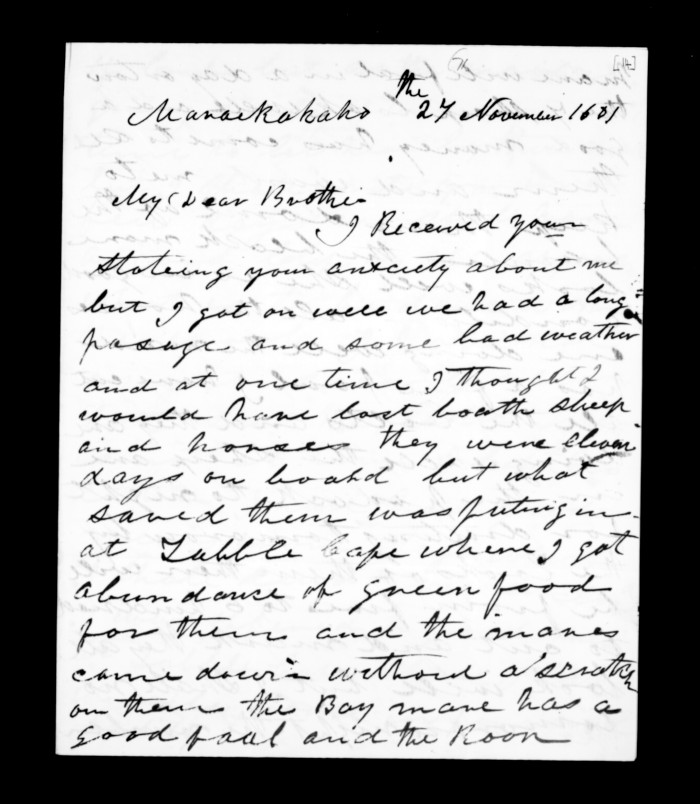 the
Manaekakaho 27 November 1661
My Dear Brother
I Received your
stateing your anxciety about me
but I got on well we had a long
pasage and some bad weather
and at one time I thought I
would have lost boath sheep
and horses they were eleven
days on board but what
saved them was puting in
at Tabble Cape where I got
abundance of green food
for them and the mares
came down without a scratch
on them the Bay mare has a
good foal and the Roon